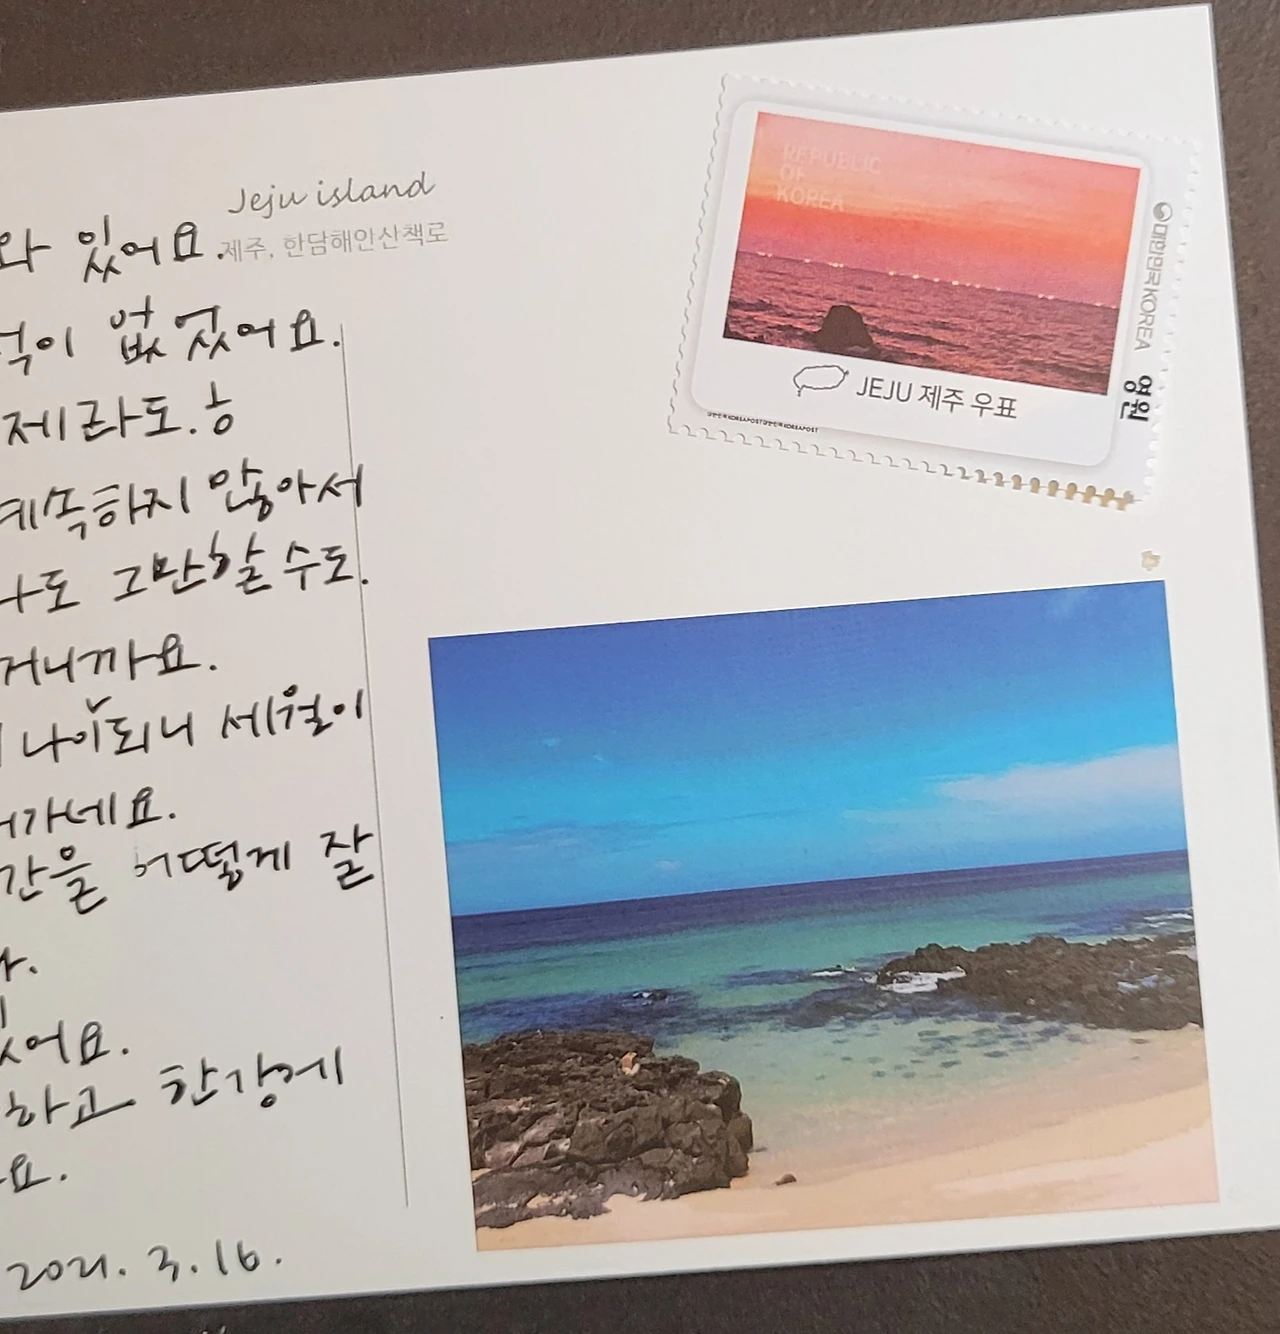 Jeju island
제주, 한담해안산책로
와 있어요.
적이 없었어요.
제라도.ㅎ
계속하지 않아서
나도 그만할 수도.
거니까요.
나이되니 세월이
어가세요.
간을 어떻게 잘
다.
었어요.
하고 한강에
요.
2021. 3. 16.
REPUBLIC
OF
KOREA
대한민국 KOREA
영원
JEJU 제주 우표